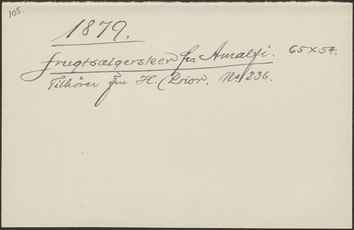 105.
1879.
Frugtsælgersken fra Amalfi. 65 x 57.
Tilhører Fru H. Prior. No 236.